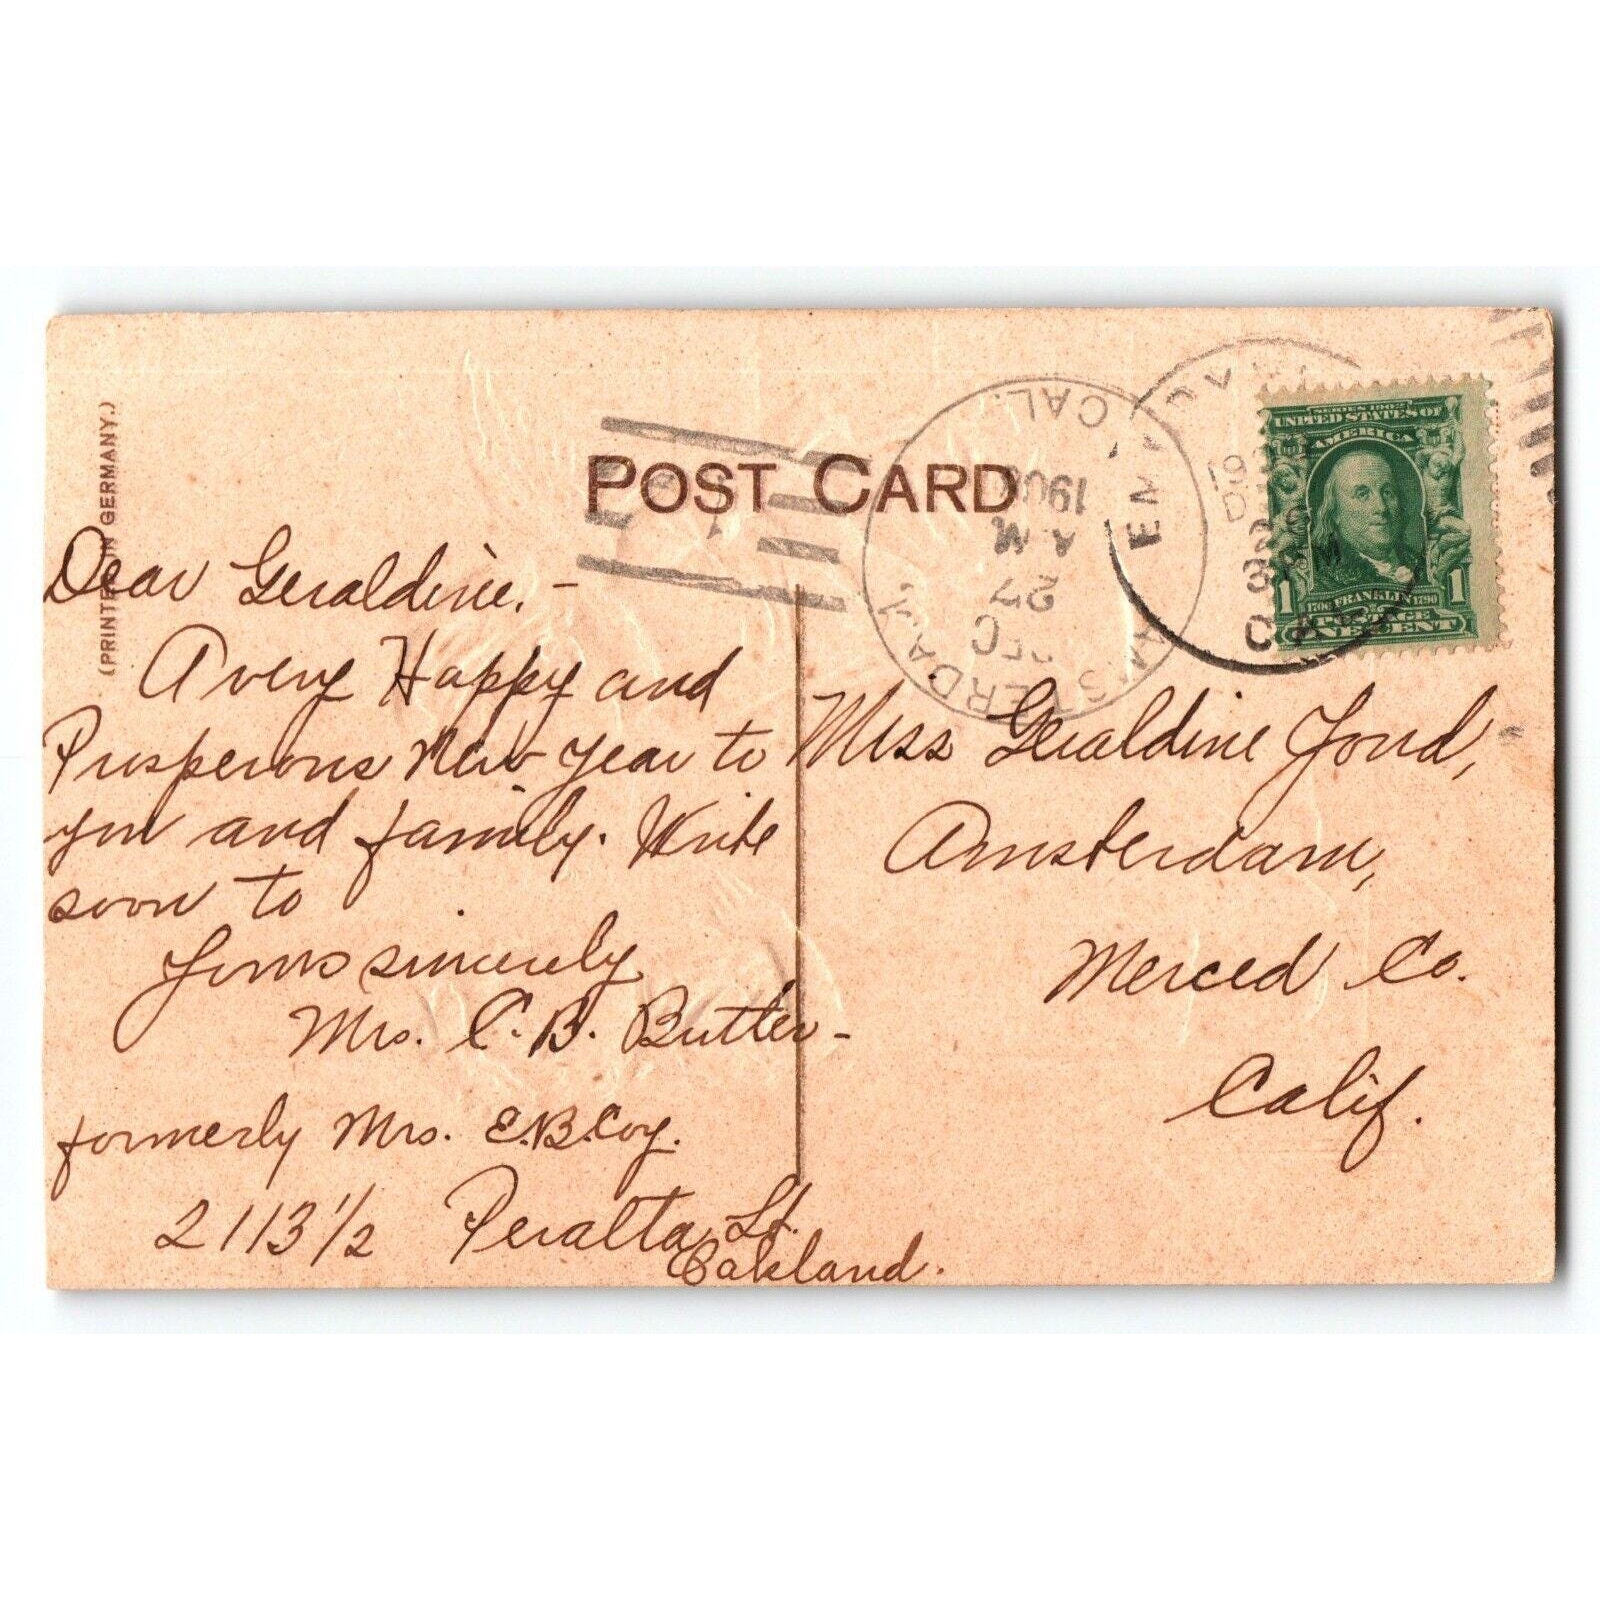 (PRINTED IN GERMANY.)
POST CARD
AMSTERDAM
CAL.
DEC
27
A.M.
1908
SERIES 1902
UNITED STATES OF
AMERICA
1706 FRANKLIN 1790
1 1
POSTAGE
ONE CENT
Dear Geraldine. -
A very Happy and
Prosperous New Year to
you and family. Write
soon to
Yours sincerely
Mrs. C. B. Butler -
formerly Mrs. E.B. Coy.
2113 1/2 Peralta St.
Oakland.
Miss Geraldine
Amsterdam,
Merced Co.
Calif.